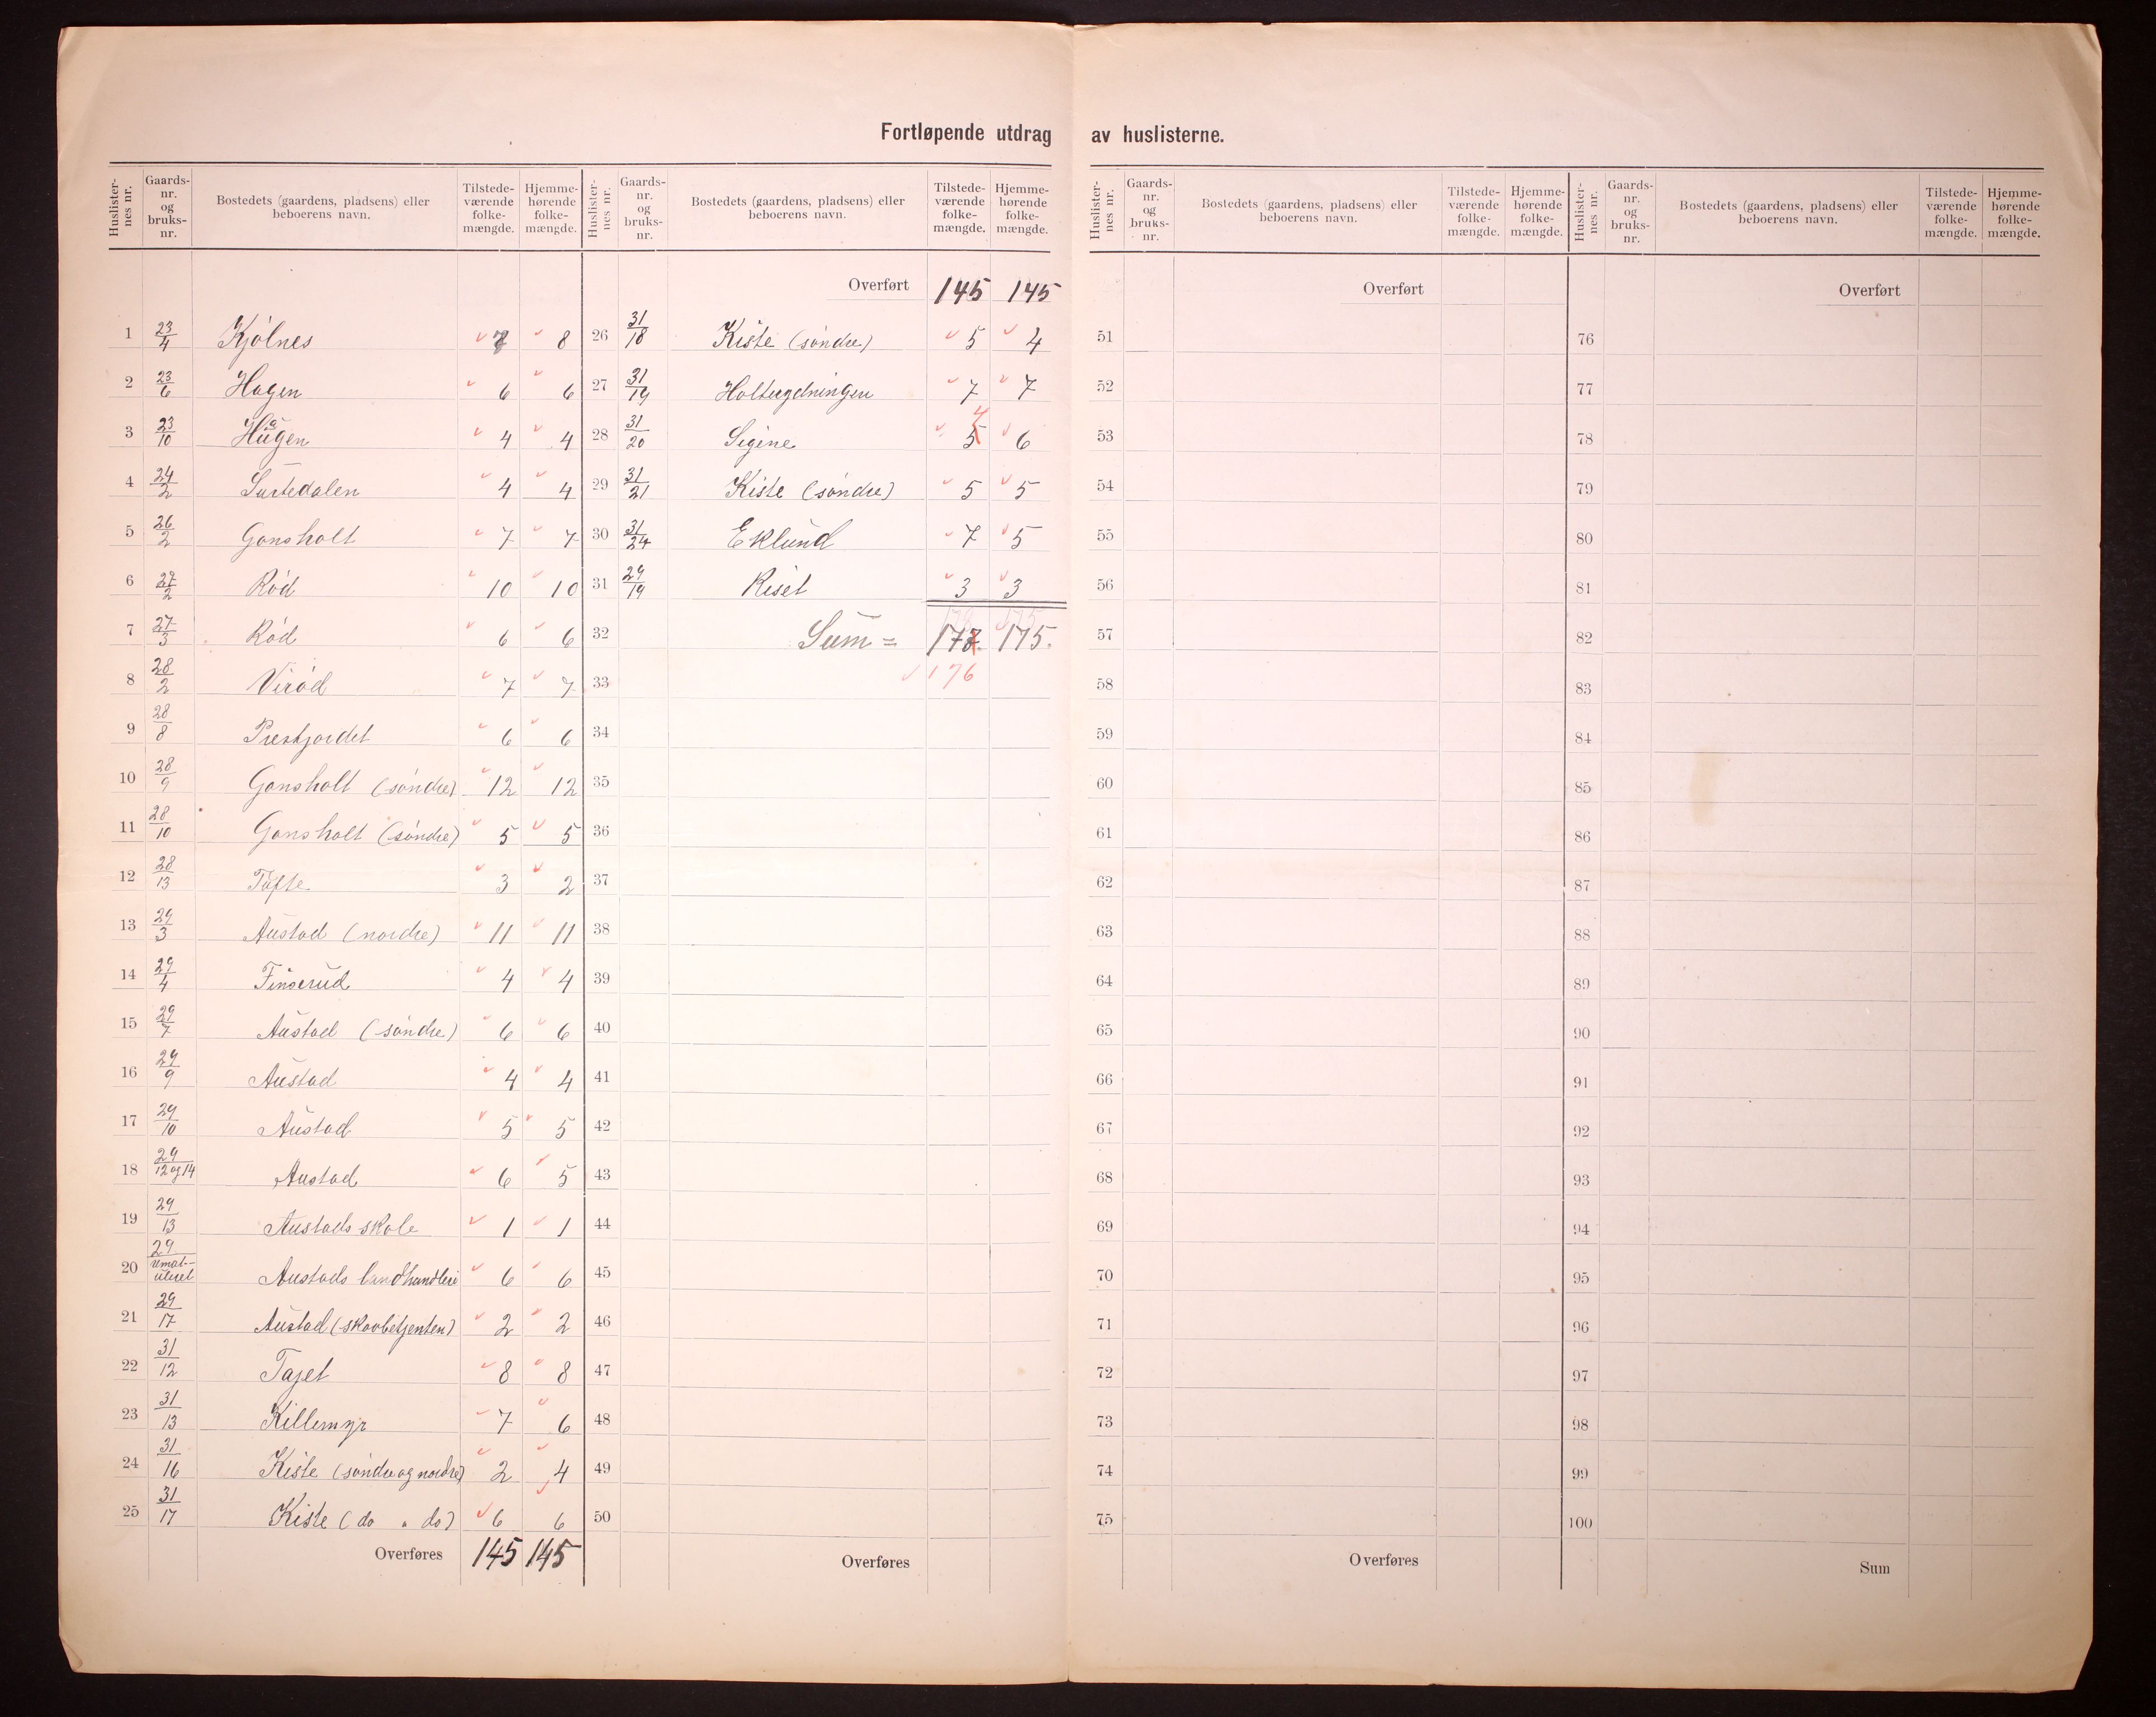 Fortløpende utdrag av huslisterne.
Huslister-nes nr. | Gaards-nr. og bruks-nr. | Bostedets (gaardens, pladsens) eller beboerens navn. | Tilstede-værende folke-mængde. | Hjemme-hørende folke-mængde.
1 23/4 Kjølnes 7 8
2 23/6 Hagen 6 6
3 23/10 Hagen 4 4
4 24/2 Surtedalen 4 4
5 26/2 Gonsholt 7 7
6 27/2 Rød 10 10
7 27/3 Rød 6 6
8 28/2 Virød 7 7
9 28/8 Prestjordet 6 6
10 28/9 Gonsholt (søndre) 12 12
11 28/10 Gonsholt (søndre) 5 5
12 28/13 Tøfte 3 2
13 29/3 Austad (nordre) 11 11
14 29/4 Finserud 4 4
15 29/7 Austad (søndre) 6 6
16 29/9 Austad 4 4
17 29/10 Austad 5 5
18 29/12 og 14 Austad 6 5
19 29/13 Austads skole 1 1
20 29/umat-uleret Austads landhandleri 6 6
21 29/17 Austad (skovbetjenten) 2 2
22 31/12 Tajet 8 8
23 31/13 Killemyr 7 6
24 31/16 Kiste (søndre og nordre) 2 4
25 31/17 Kiste (do " do) 6 6
Overføres 145 145
Huslister-nes nr. | Gaards-nr. og bruks-nr. | Bostedets (gaardens, pladsens) eller beboerens navn. | Tilstede-værende folke-mængde. | Hjemme-hørende folke-mængde.
Overført 145 145
26 31/18 Kiste (søndre) 5 4
27 31/19 Holterydningen 7 7
28 31/20 Sigine 5 4 6
29 31/21 Kiste (søndre) 5 5
30 31/24 Eklund 7 5
31 29/19 Riset 3 3
32 Sum = 177. 175.
33 176
34
35
36
37
38
39
40
41
42
43
44
45
46
47
48
49
50
Overføres
Huslister-nes nr. | Gaards-nr. og bruks-nr. | Bostedets (gaardens, pladsens) eller beboerens navn. | Tilstede-værende folke-mængde. | Hjemme-hørende folke-mængde.
Overført
51
52
53
54
55
56
57
58
59
60
61
62
63
64
65
66
67
68
69
70
71
72
73
74
75
Overføres
Huslister-nes nr. | Gaards-nr. og bruks-nr. | Bostedets (gaardens, pladsens) eller beboerens navn. | Tilstede-værende folke-mængde. | Hjemme-hørende folke-mængde.
Overført
76
77
78
79
80
81
82
83
84
85
86
87
88
89
90
91
92
93
94
95
96
97
98
99
100
Sum